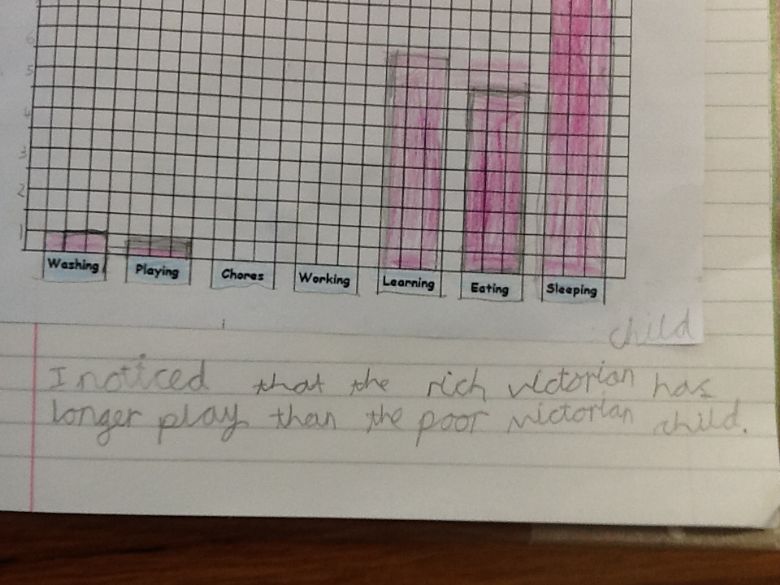 6
5
4
3
2
1
Washing Playing Chores Working Learning Eating Sleeping
child
I noticed that the rich victorian has
longer play than the poor victorian child.